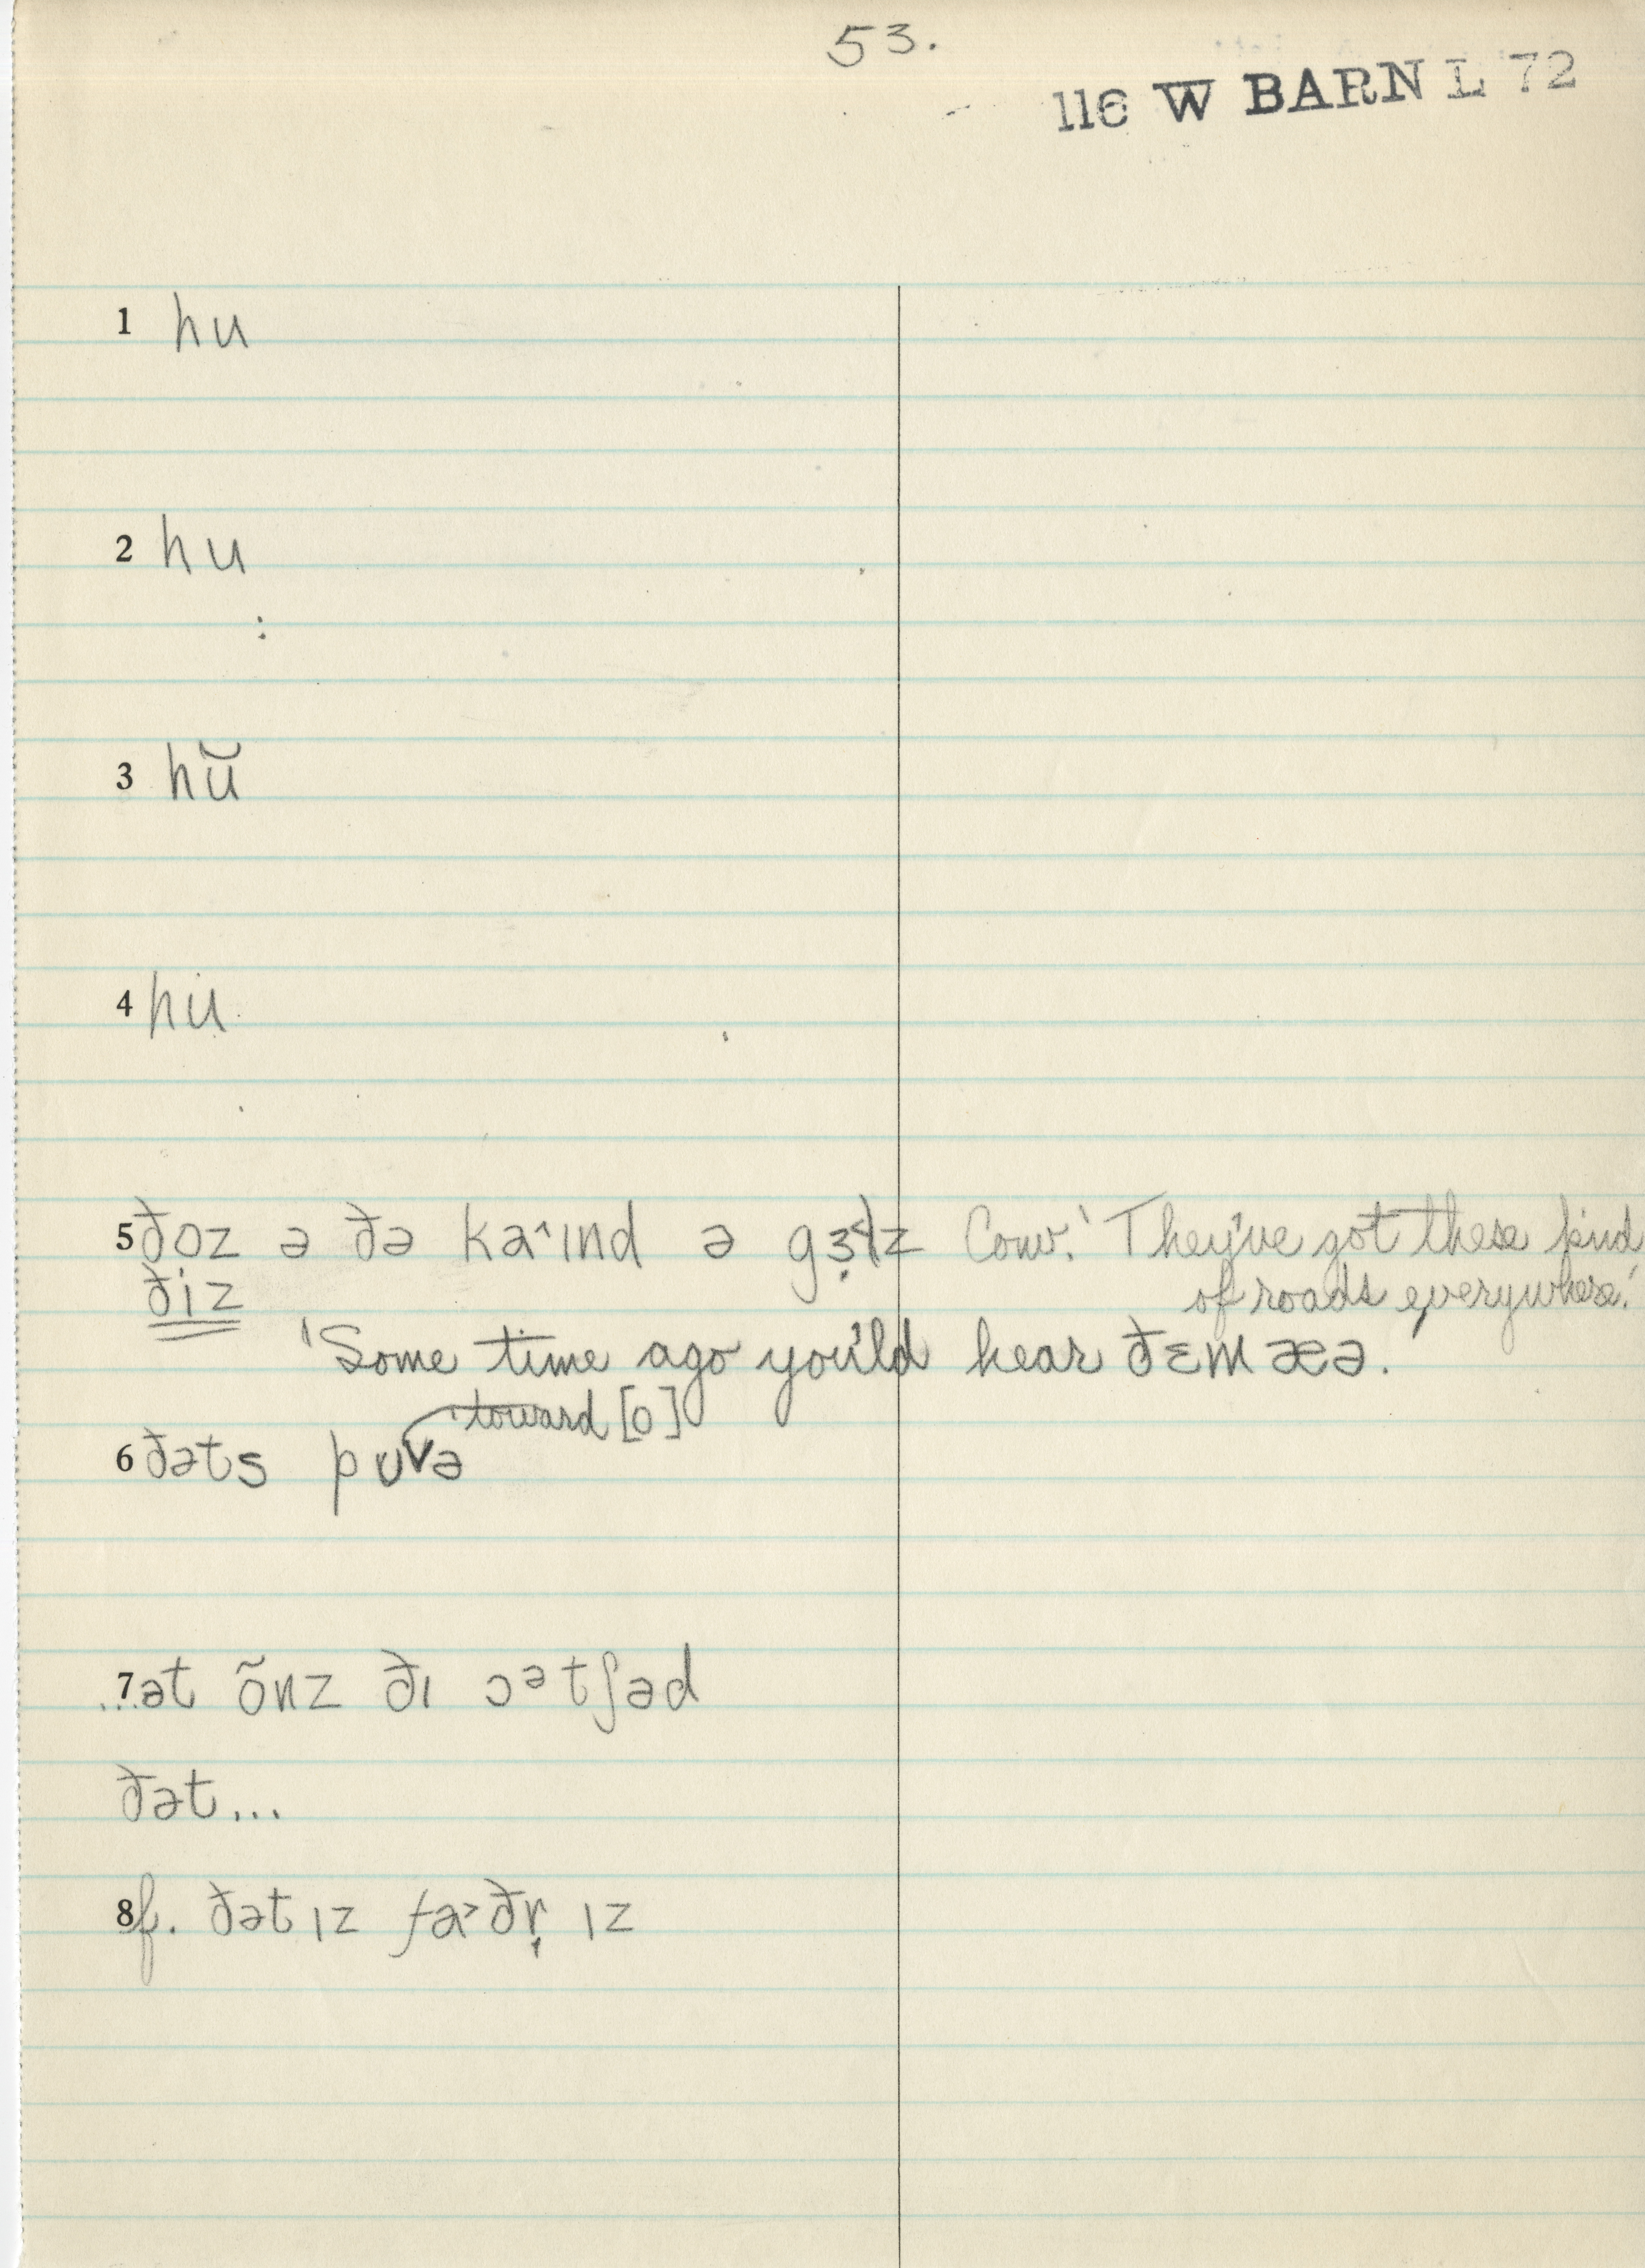 53.
116 W BARN L 72
1 hu
2 hu
:
3 hŭ
4 hu
5 ðoz ə ðə kaˆɪnd ə gɜ˞lz Conv. 'They've got these kind
ðiz of roads everywhere.'
'Some time ago you'ld hear ðɛm æə.
toward [o]
6 ðəts pʊvə
7 ...ət õnz ðɪ ɔᵊtʃəd
ðət...
8 f. ðət ɪz fa˃ðr̩ ɪz